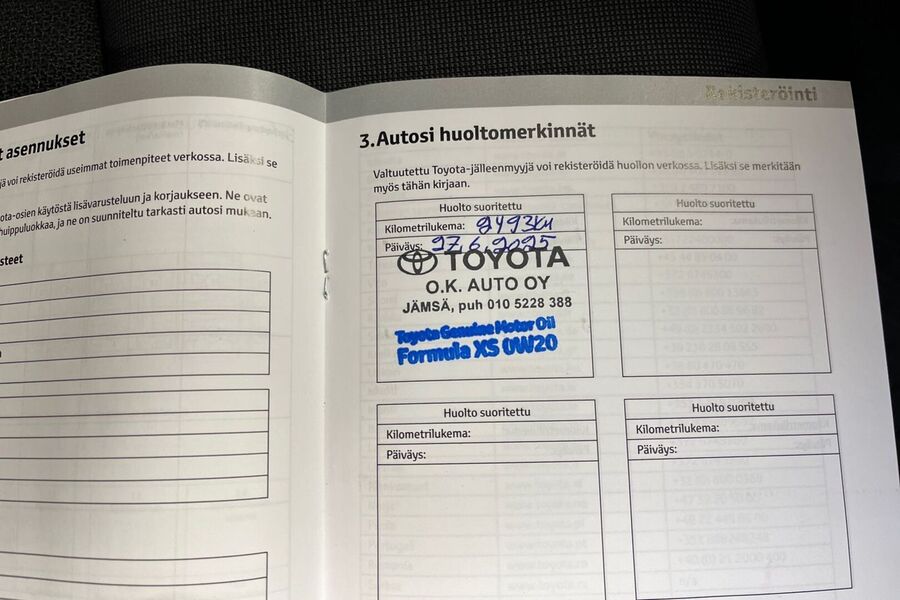 t asennukset
jä voi rekisteröidä useimmat toimenpiteet verkossa. Lisäksi se
ota-osien käytöstä lisävarusteluun ja korjaukseen. Ne ovat
huippuluokkaa, ja ne on suunniteltu tarkasti autosi mukaan.
steet
Rekisteröinti
3.Autosi huoltomerkinnät
Valtuutettu Toyota-jälleenmyyjä voi rekisteröidä huollon verkossa. Lisäksi se merkitään
myös tähän kirjaan.
Huolto suoritettu
Kilometrilukema: 9493km
Päiväys: 27.6.2025
TOYOTA
O.K. AUTO OY
JÄMSÄ, puh 010 5228 388
Toyota Genuine Motor Oil
Formula XS 0W20
Huolto suoritettu
Kilometrilukema:
Päiväys:
Huolto suoritettu
Kilometrilukema:
Päiväys:
Huolto suoritettu
Kilometrilukema:
Päiväys: